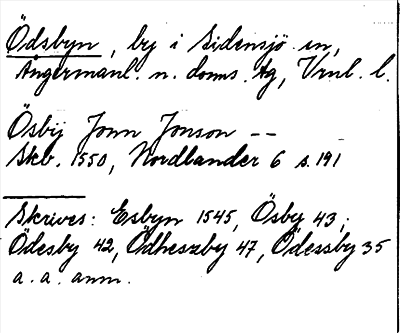 Ödsbyn, by i Sidensjö sn,
Ångermanl. n. doms. tg, Vrnl. l.
Ösbÿ Jonn Jonson --
Skb. 1550, Nordlander 6 s. 191
Skrives: Esbyn 1545, Ösby 43;
Ödesby 42, Ödheszby 47, Ödessby 35
a. a. anm.